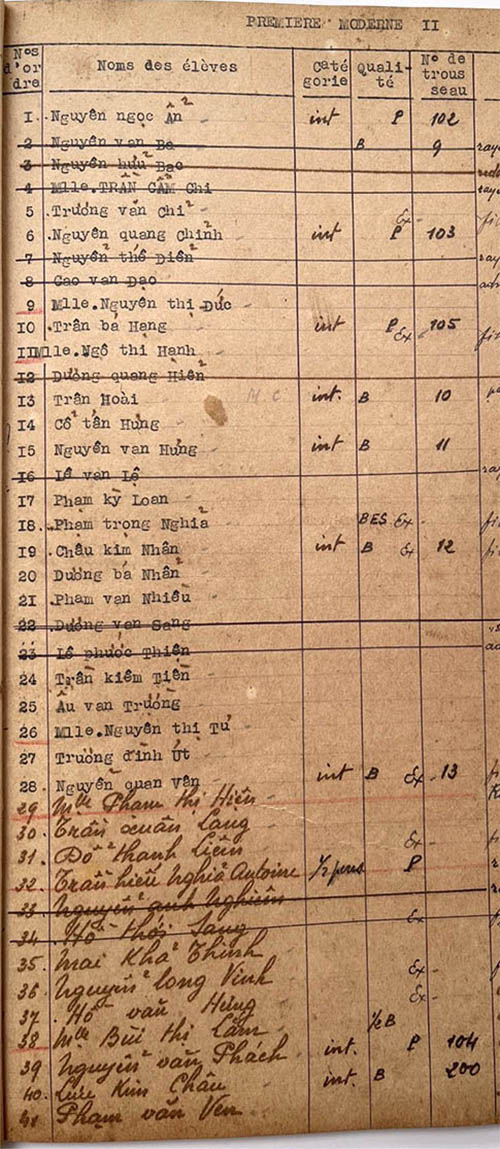 PREMIERE MODERNE II
Nos d'or dre Noms des élèves Caté gorie Quali- té No de trous seau
I. Nguyễn ngọc Ẩn int P 102
2 Nguyễn van Ba B 9
3 Nguyễn hữu Bao
4 Mlle.TRẦN CẨM Chi
5 .Trương văn Chi
6 .Nguyễn quang Chỉnh int Ex - P 103
7 Nguyễn thế Diễn
8 Cao van Dạo
9 Mlle.Nguyễn thị Đức
IO .Trần bá Hạng int P Ex 105
IIMlle.Ngô thi Hạnh
I2 Dương quang Hiển
I3 Trần Hoài M C int. B 10
I4 Cổ tấn Hưng
I5 Nguyễn van Hưng int B 11
I6 Lê van Lệ
I7 Phạm kỳ Loan
I8. .Phạm trọng Nghĩa BES Ex -
I9 .Châu kim Nhân int B Ex 12
20 Dương bá Nhẫn
2I .Phạm vạn Nhiều
22 .Dương vạn Sang
23 .Lê phước Thiện
24 Trần kiêm Tiền
25 Âu van Trương
26 Mlle.Nguyễn thị Tư
27 Trương đình Út
28 .Nguyễn quan Vân int B Ex - 13
29 Mlle Phạm thị Hiền
30. Trần xuân Lạng
31. Đỗ thanh Liêm Ex -
32. Trần hiếu Nghĩa Antoine ½ pens P
33. Nguyễn anh Nghiêm
34. Hồ thới Sang Ex
35. Mai Khả Thinh
36. Nguyễn long Vinh Ex -
37. Hồ văn Hưng Ex -
38 Mlle Bùi thị Lắm ½ B
39 Nguyễn văn Phách int. P 104
40. Lưu Kim Châu int. B 200
41 Phạm văn Ven